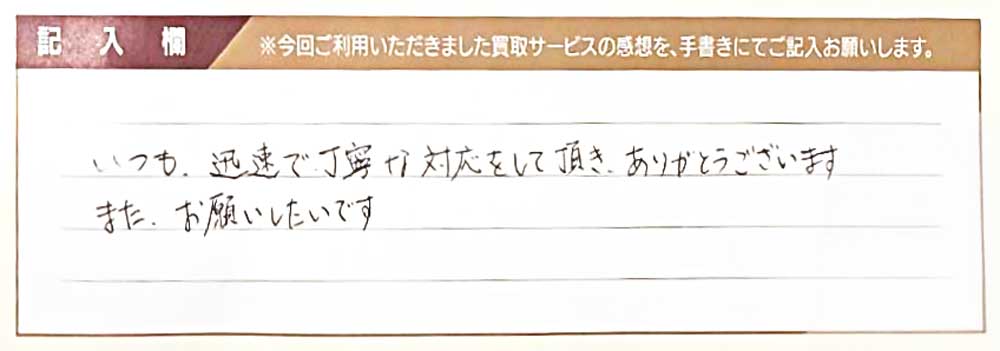 記入欄
※今回ご利用いただきました買取サービスの感想を、手書きにてご記入お願いします。
いつも、迅速で丁寧な対応をして頂き、ありがとうございます
また、お願いしたいです